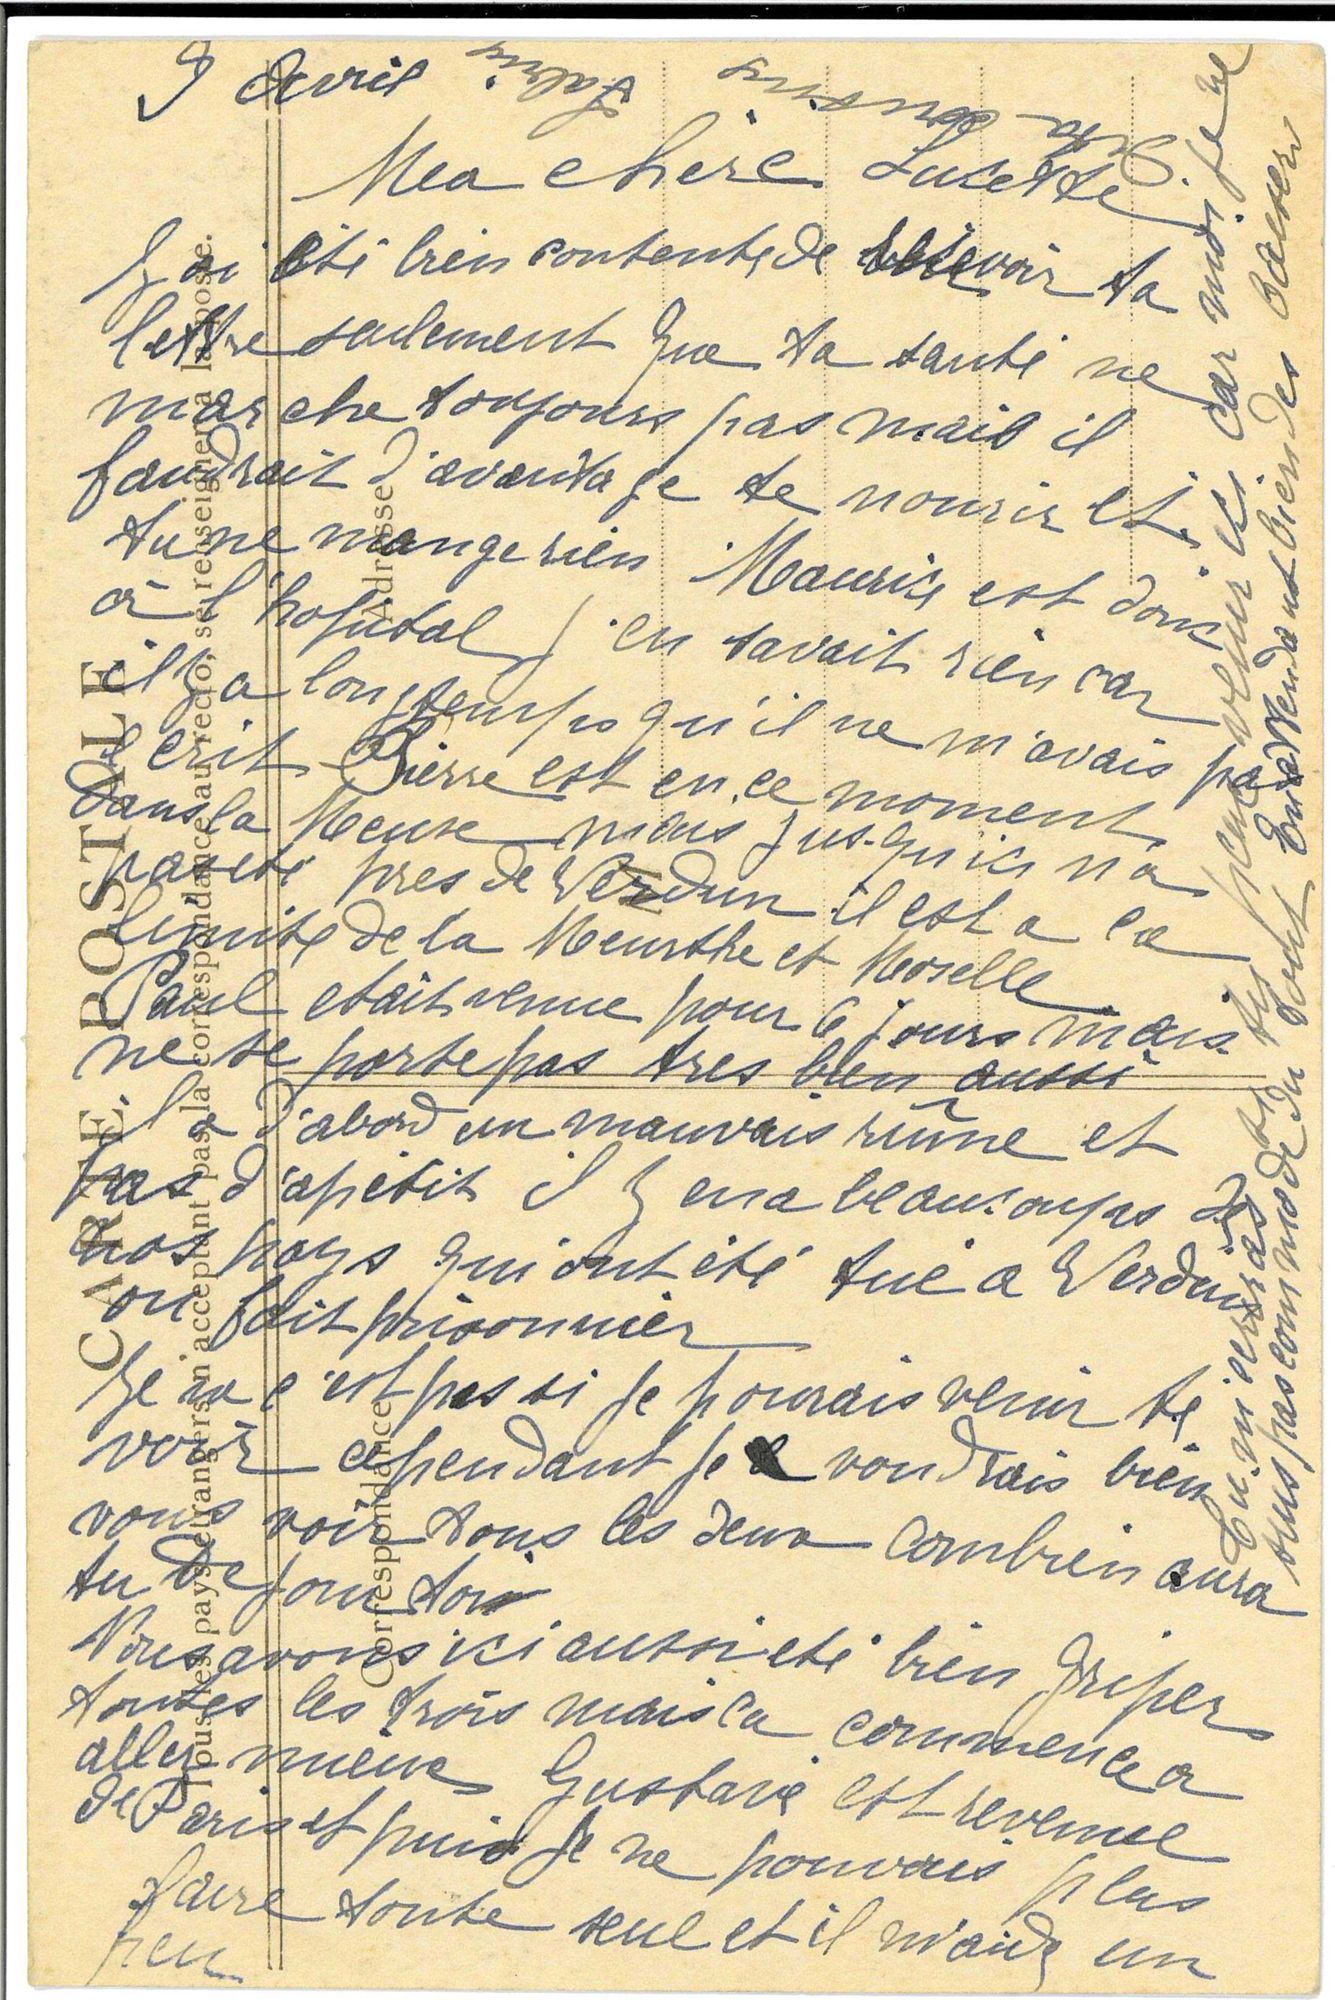 9 Avril
Ma chere Lucette
J ai été bien contente de recevoir ta
lettre seulement que ta santé ne
marche toujours pas mais il
faudrait d'avantage te nourir et
tu ne mange rien Maurice est donc
a l'hopital j'en savait rien car
il y a longtemps qu'il ne m'avais pas
ecrit Pierre est en ce moment
dans la Meuse mais jusqu'ici n'a
pas eté pres de Verdun il est a la
limite de la Meurthe et Moselle
Paul etait venue pour 6 jours mais
ne se porte pas tres bien aussi
il a d'abord un mauvais rhûme et
pas d'apetit il y en a beaucoups de
nos pays qui ont été tué a Verdun
ou fait prisonnier
Je ne c'est pas si je pourais venir te
voir cependant je voudrais bien
vous voir tous les deux combien aura
tu de jour toi
Nous avons ici aussi eté bien griper
toutes les trois mais ca commence a
aller mieux Gustave est revenue
de Paris et puis je ne pouvais plus
faire toute seul et il m'aide un
peu
Tu m'ecriras si tu peux venir ici car moi je ne
suis pas commode du tout En attendant bien des Baisers
Ta cousine
CARTE POSTALE
Tous les pays étrangers n'acceptant pas la correspondance au recto, se renseigner à la poste.
Correspondance
Adresse